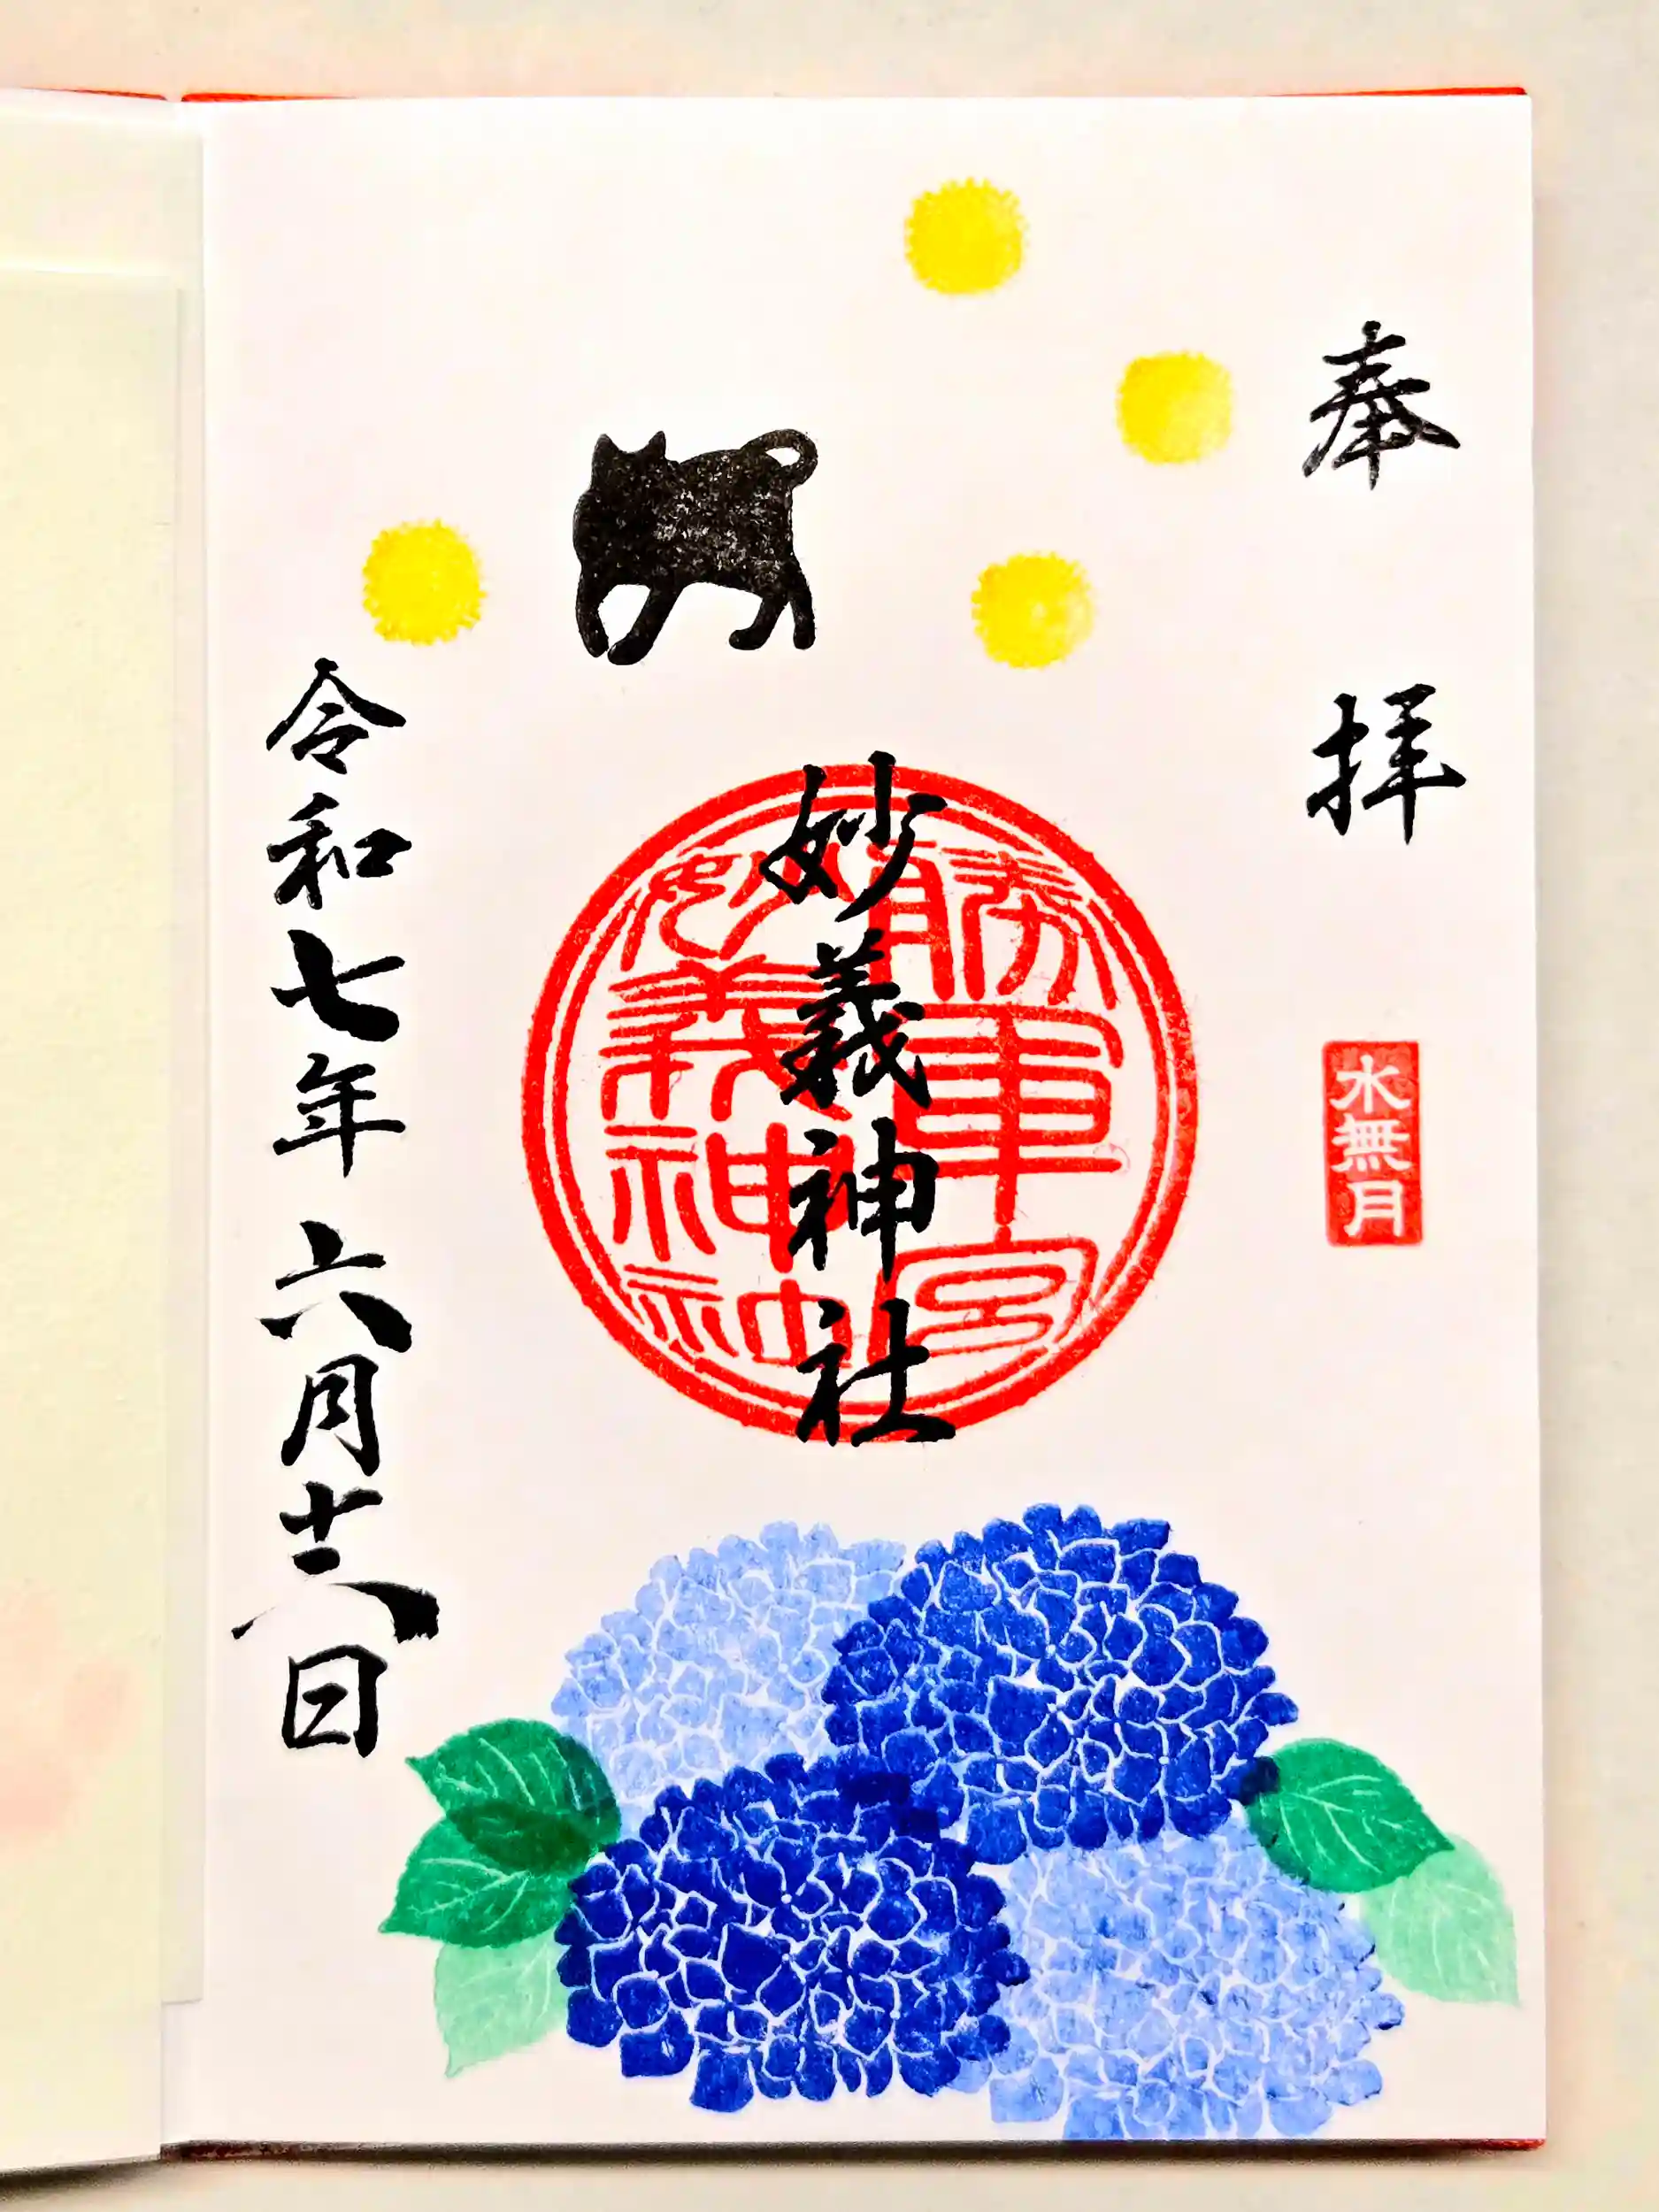 奉拝
水無月
妙義神社
勝軍宮
妙義神社
令和七年六月十日